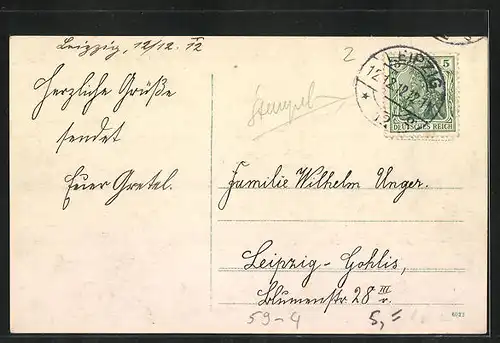 Leipzig, 12/12. 12
2
LEIPZIG
12.12.12.12-1
* 13
5
DEUTSCHES REICH
Herzliche Grüße
sendet
Euer Gretel.
Stempel
Familie Wilhelm Unger.
Leipzig-Gohlis,
Blumenstr 28 III r.
59-4
5,=
6021